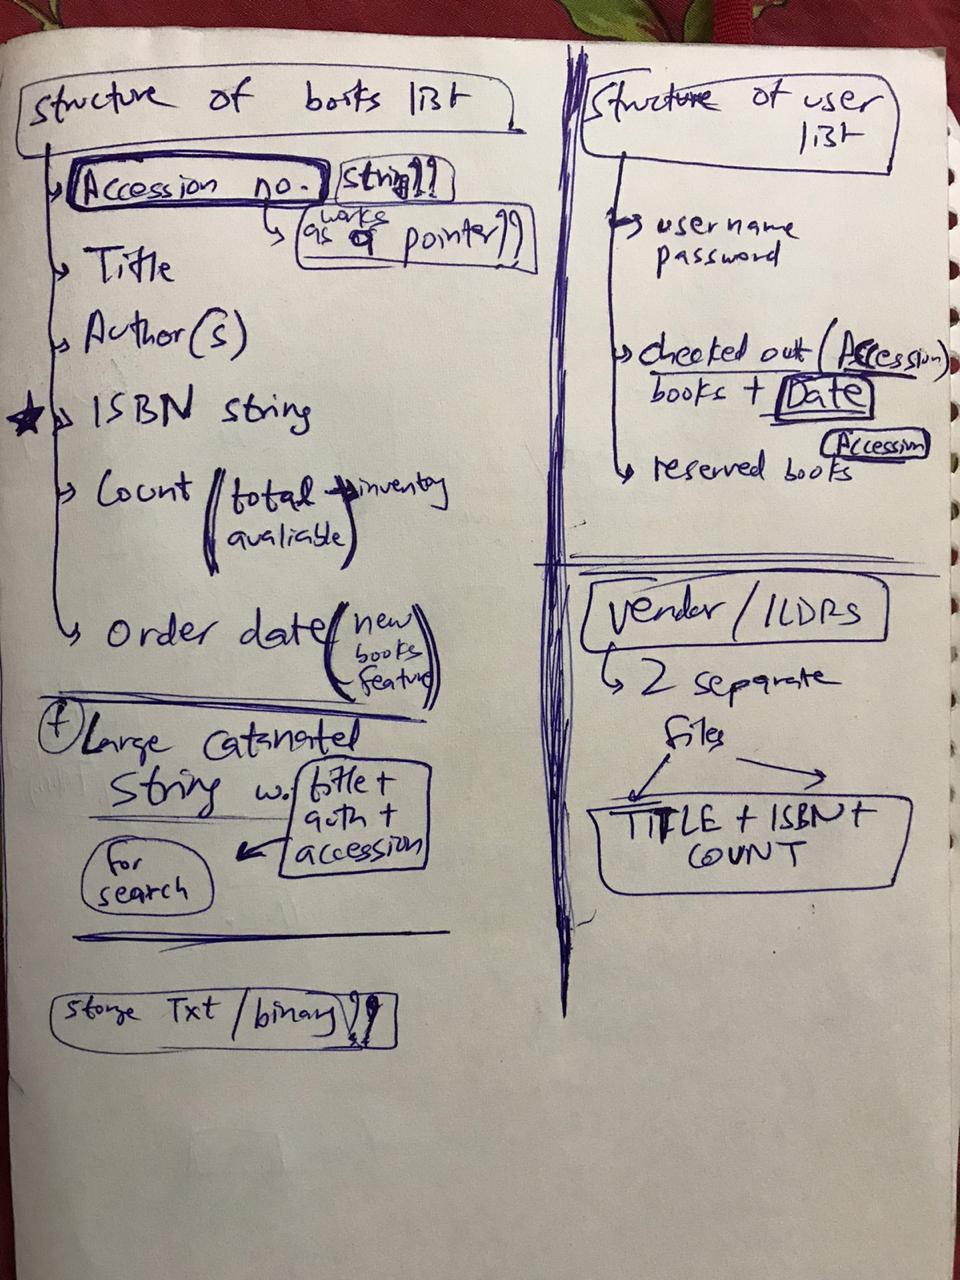 structure of books list
Accession no. string??
works
as a pointer??
Title
Author(s)
ISBN string
Count (total → inventory
avaliable)
Order date (new
books
feature)
+ Large catanated
string w. title +
auth +
accession
for
search
Storge Txt / binary??
Structure of user
list
username
password
checked out (Accession)
books + Date
Accession
reserved books
Vendor / ILDRS
2 separate
files
TITLE + ISBN +
COUNT